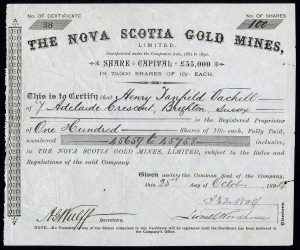 No OF CERTIFICATE
38
No OF SHARES
100
THE NOVA SCOTIA GOLD MINES,
LIMITED.
Incorporated under the Companies Acts, 1862 to 1890.
SHARE CAPITAL £35,000
IN 70,000 SHARES OF 10/- EACH.
This is to Certify that Henry Tanfield Vachell
of 7 Adelaide Crescent, Brighton, Sussex
is the Registered Proprietor
of One Hundred Shares of 10/- each, Fully Paid,
numbered 45659 to 45758 inclusive,
in THE NOVA SCOTIA GOLD MINES, LIMITED, subject to the Rules and
Regulations of the said Company.
Given under the Common Seal of the Company,
this 25th day of October
Secretary.
Directors.
No Transfer of any Shares comprised in this Certificate will be registered until the Certificate has been delivered at the
Company's Office.